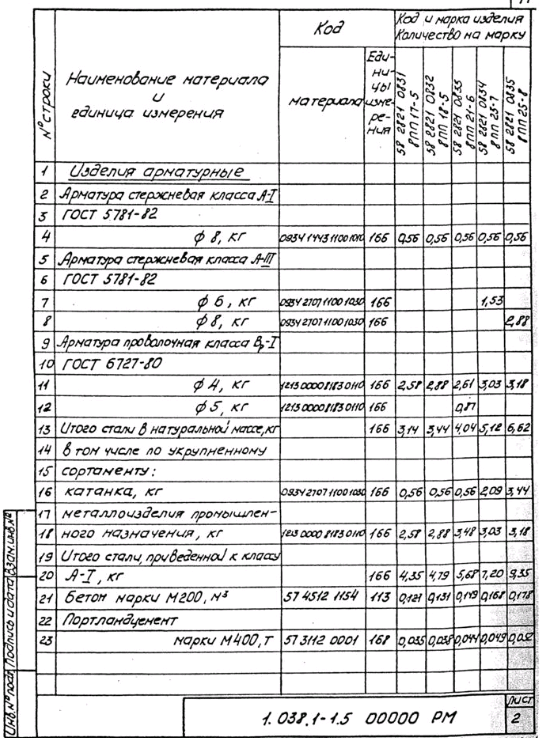 Код
Код и марка изделия
Количество на марку
№ строки
Наименование материала
и
единица измерения
материала
Еди-
ни-
цы
изме-
ре-
ния
58 2821 0831
8ПП 17-5
58 2821 0832
8ПП 18-5
58 2821 0833
8ПП 21-6
58 2821 0834
8ПП 25-7
58 2821 0835
8ПП 25-8
1 Изделия арматурные
2 Арматура стержневая класса А-I
3 ГОСТ 5781-82
4 ф 8, кг 0934 1443 1100 1010 166 0,56 0,56 0,56 0,56 0,56
5 Арматура стержневая класса А-III
6 ГОСТ 5781-82
7 ф 6, кг 0934 2707 1100 1030 166 1,53
8 ф 8, кг 0934 2707 1100 1030 166 2,88
9 Арматура проволочная класса Вр-I
10 ГОСТ 6727-80
11 ф 4, кг 1213 0000 8183 0110 166 2,58 2,88 2,61 3,03 3,18
12 ф 5, кг 1213 0000 8183 0110 166 0,87
13 Итого стали в натуральной массе, кг 166 3,14 3,44 4,04 5,12 6,62
14 в том числе по укрупненному
15 сортаменту:
16 катанка, кг 0934 2707 1100 1030 166 0,56 0,56 0,56 2,09 3,44
17 металлоизделия промышлен-
18 ного назначения, кг 1213 0000 8183 0110 166 2,58 2,88 3,48 3,03 3,18
19 Итого стали, приведенной к классу
20 А-I, кг 166 4,35 4,79 5,68 7,20 9,35
21 Бетон марки М200, м³ 57 4512 1154 113 0,121 0,131 0,149 0,168 0,178
22 Портландцемент
23 марки М400, т 57 3112 0001 168 0,035 0,038 0,044 0,049 0,052
Инв. № подл. Подпись и дата Взам. инв. №
1.038.1-1.5 00000 РМ
Лист
2